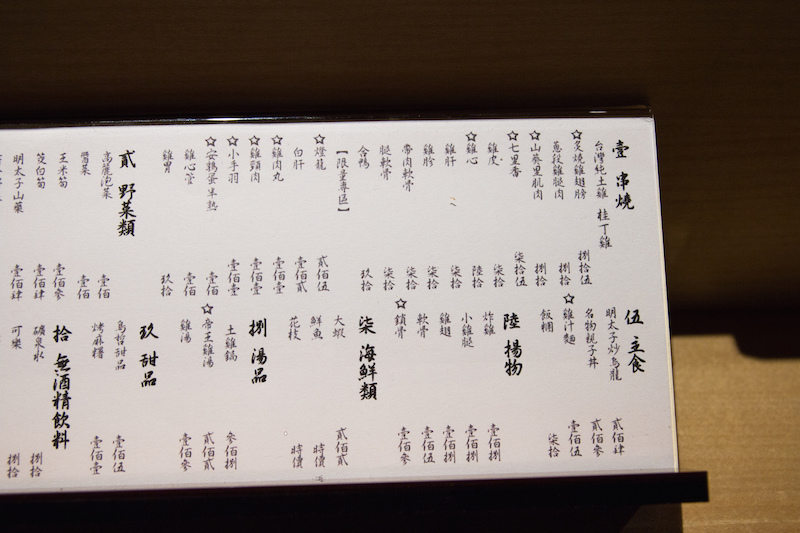 壹 串燒
台灣純土雞 桂丁雞
☆炙燒雞翅膀 捌拾伍
蔥段雞腿肉 捌拾
☆山葵里肌肉 捌拾
☆七里香 柒拾伍
雞皮 柒拾
☆雞心 陸拾
雞肝 柒拾
雞胗 柒拾
帶肉軟骨 柒拾
腿軟骨 柒拾
合鴨 玖拾
【限量專區】
☆燈籠 貳佰伍
白肝 壹佰貳
☆雞肉丸 壹佰壹
☆雞頸肉 壹佰壹
☆小手羽 壹佰壹
☆安鵪蛋半熟 壹佰
雞心管 壹佰
雞腎 玖拾
貳 野菜類
高麗泡菜 壹佰
醬菜 壹佰
玉米筍 壹佰參
筊白筍 壹佰肆
明太子山藥 壹佰肆
伍 主食
明太子炒烏龍 貳佰肆
名物親子丼 貳佰參
☆雞汁麵 壹佰伍
飯糰 柒拾
陸 揚物
炸雞 壹佰捌
小雞腿 壹佰捌
雞翅 壹佰捌
軟骨 壹佰伍
☆鎖骨 壹佰參
柒 海鮮類
大蝦 貳佰貳
鮮魚 時價
花枝 時價
捌 湯品
土雞鍋 參佰捌
☆帝王雞湯 貳佰貳
雞湯 壹佰壹
玖 甜品
烏哲甜品 壹佰伍
烤麻糬 壹佰壹
拾 無酒精飲料
礦泉水 捌拾
可樂 捌拾